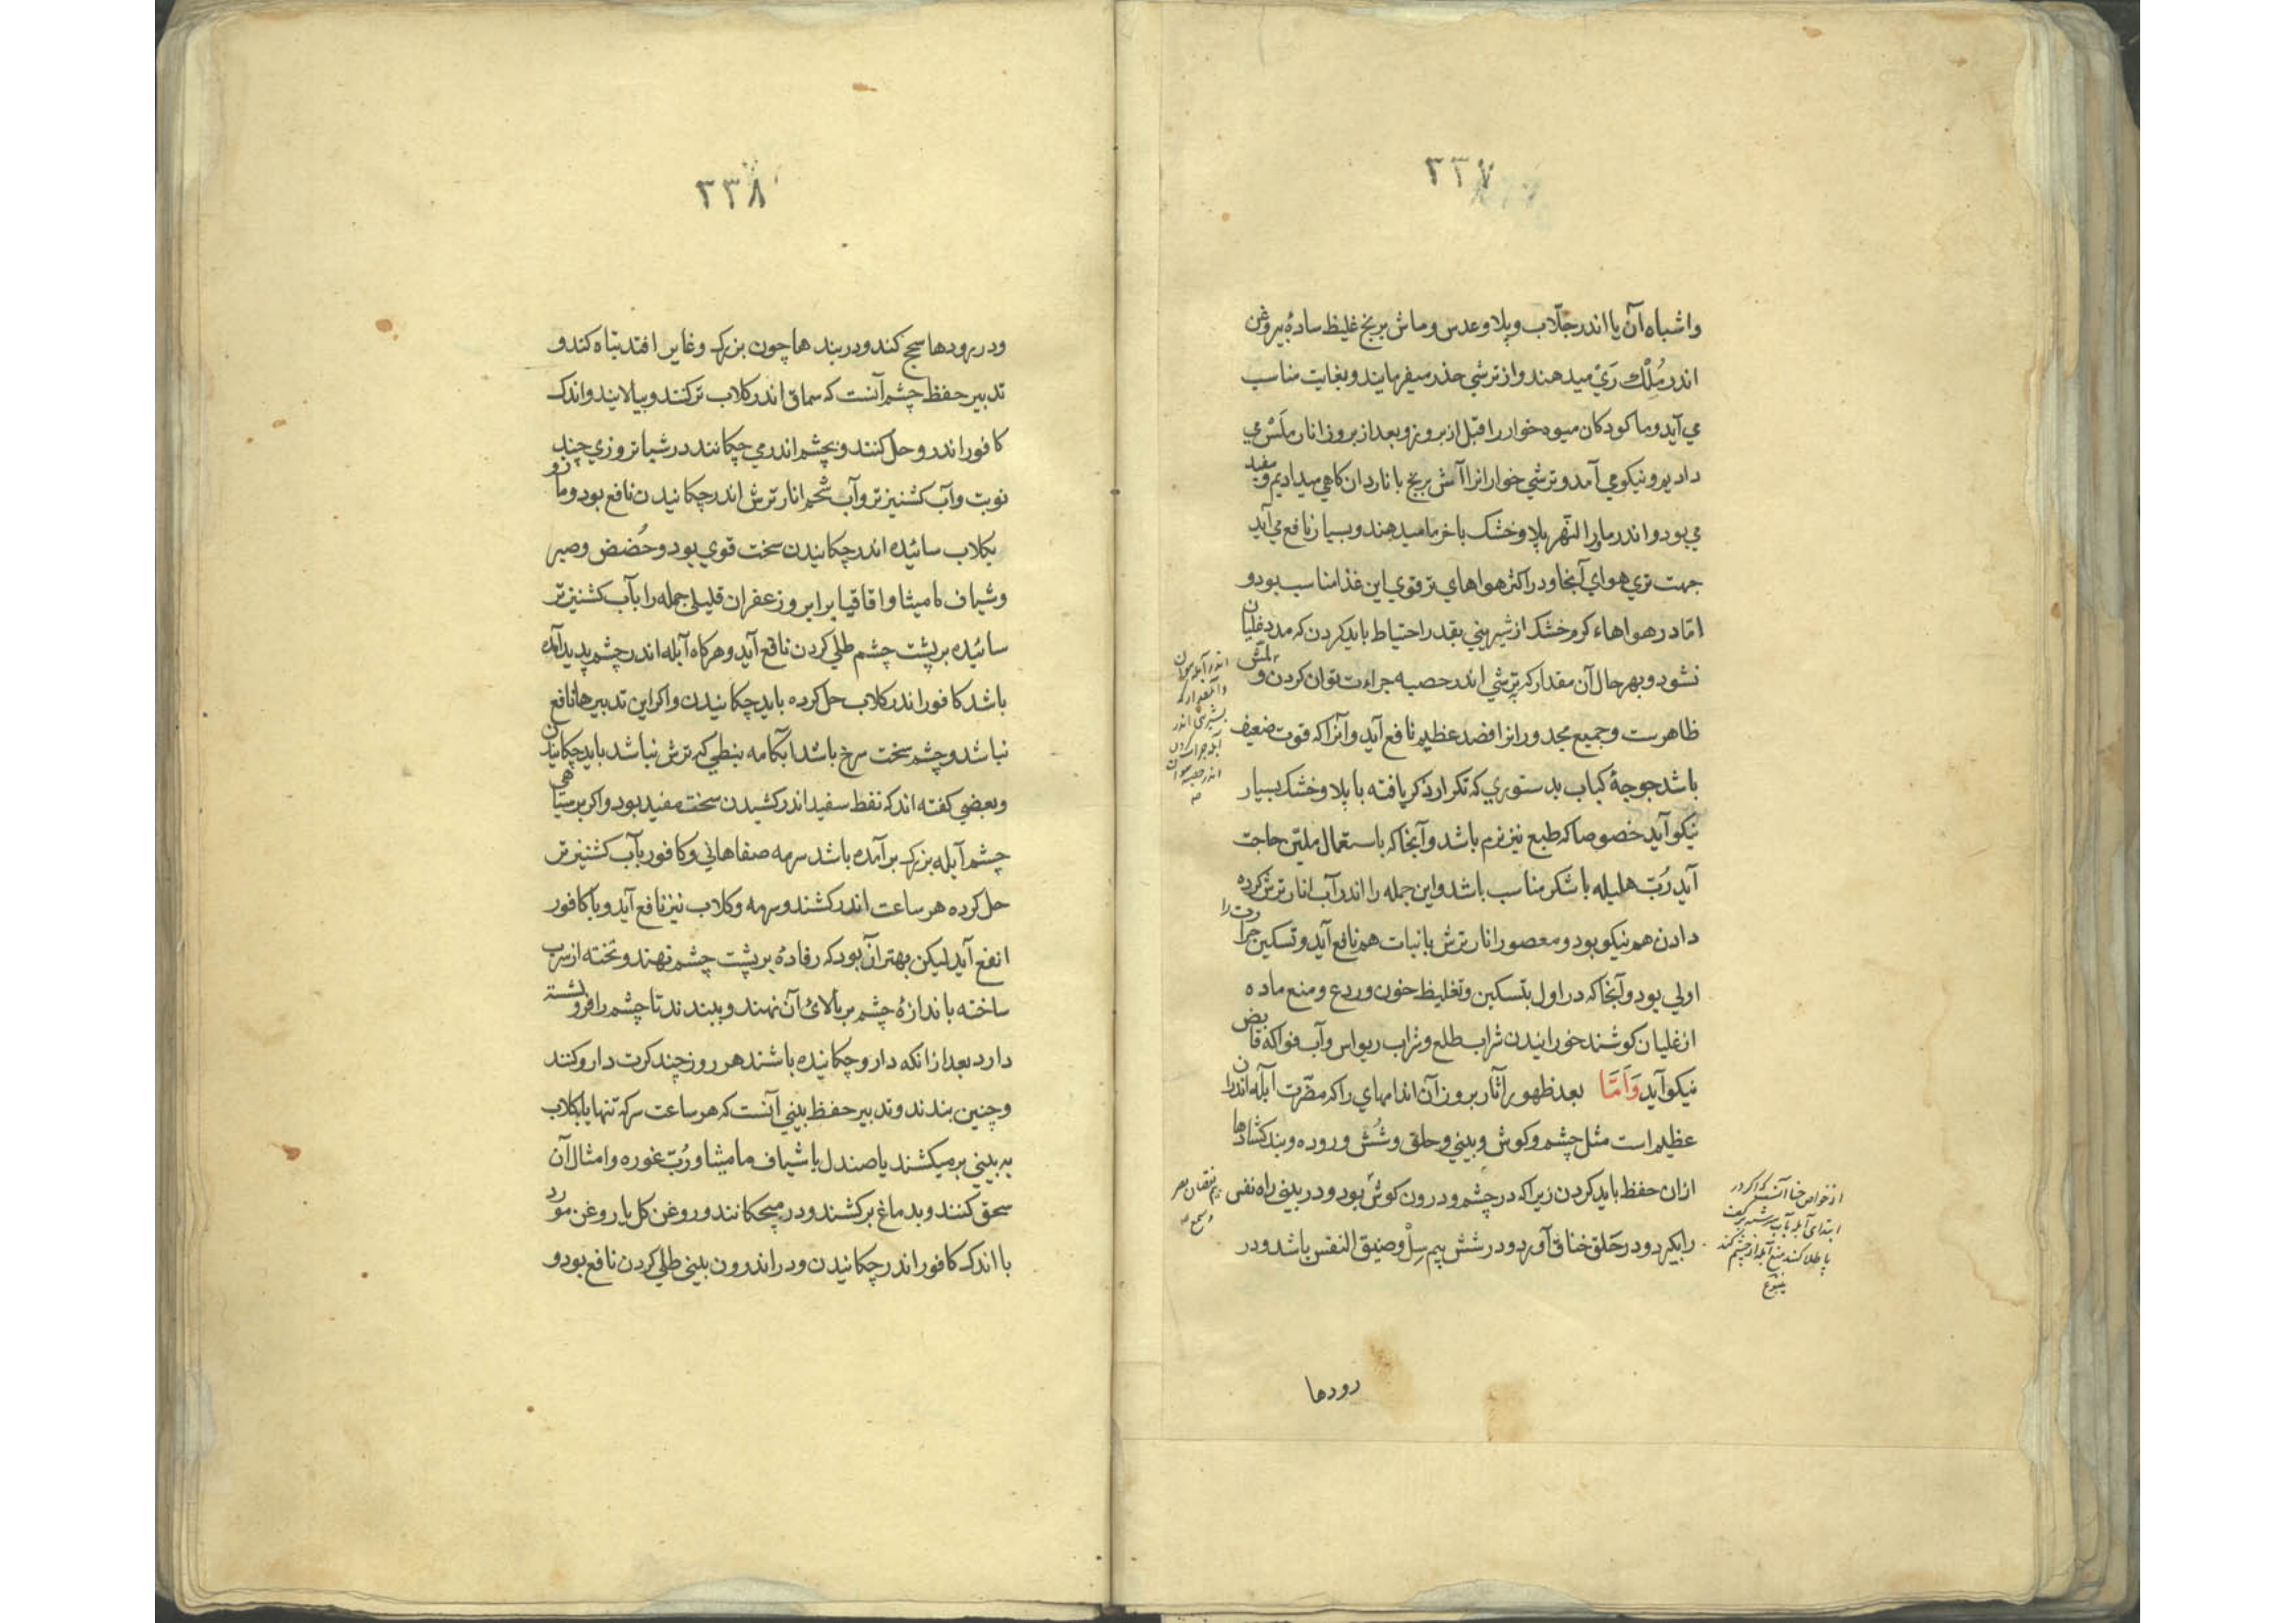 ۳۳۷
واشباه آن یا اندر جلّاب وپلاو عدس وماش برنج غلیظ سادهٔ بیروغن
اندر مُلْك رَيْ میدهند واز ترشي حذر میفرمایند وبغایت مناسب
مي آید وما کودکان میوه خوار را قبل از بروز وبعد از بروز انار ملَسْ مي
دادیم ونیکو مي آمد وترشي خوارانرا آش برنج با ناردان کاهي میدادیم ومفید
مي بود واندر ماورا النّهر پلاو خشک باخرما میدهند وبسیار نافع مي آید
جهت تري هواي آنجا ودر اکثر هواهاي تر قوي این غذا مناسب بود و
امّا در هواهاء کرم خشک از شیریني بقدر احتیاط باید کردن که مدد غلیان
نشود وبهر حال آن مقدار که بترشي اندر حصبه جراءت توان کردن و
ظاهرست وجمیع مجدورانرا فصد عظیم نافع آید وآنرا که قوت ضعیف
باشد جوجهٔ کباب بدستوري که تکرار ذکر یافته با پلاو خشک بسیار
نیکو آید خصوصا که طبع نیز نرم باشد وآنجا که باستعمال ملیّن حاجت
آید رُبّ هلیله با شکر مناسب باشد واین جمله را اندر آب انار ترش کرده
دادن هم نیکو بود ومعصور انار ترش بانبات هم نافع آید وتسکین حرارت را
اولي بود وآنجا که در اول بتسکین وتغلیظ خون وردع ومنع ماده
از غلیان کوشند خورانیدن شراب طلع وشراب ریواس وآب فواکه قابض
نیکو آید وَاَمَّا بعد ظهور آثار بروز آن اندامهاي را که مضّرت آبله اندران
عظیم است مثل چشم وکوش وبیني وحلق وشُش وروده وبندکشادها
ازان حفظ باید کردن زیرا که در چشم ودرون کوش بود ودر بیني راه نفس
را بکیرد ودر حَلق خناق آورد ودر شش بیم سِلْ وضیق النفس باشد ودر
از خواص حنا آنست که اکر در
ابتدای آبله بآب سرشته بر کف
پا طلا کنند منع آبله از چشم کند
رودها
۳۳۸
ودر رودها سحج کند ودر بندها چون بزرک وغایر افتد تباه کند و
تدبیر حفظ چشم آنست که سماق اندر کلاب تر کنند وبپالایند واندک
کافور اندرو حل کنند وبچشم اندر مي چکانند در شبانروزي چند
نوبت وآب کشنیز تر وآب شحم انار ترش اندر چکانیدن نافع بود ومازو
بکلاب سائیده اندر چکانیدن سخت قوي بود وحُضض وصبر
وشیاف مامیثا واقاقیا برابر وزعفران قلیلي جمله را بآب کشنیز تر
سائیده بر پشت چشم طلي کردن نافع آید وهرکاه آبله اندر چشم پدید آمده
باشد کافور اندر کلاب حل کرده باید چکانیدن واکر این تدبیرها نافع
نباشد وچشم سخت سرخ باشد آبکامه نبطي که ترش نباشد باید چکانیدن
وبعضي کفته اند که نفط سفید اندر کشیدن سخت مفید بود واکر بر سیاهي
چشم آبله بزرک برآمده باشد سرمه صفاهاني وکافور بآب کشنیز تر
حل کرده هر ساعت اندر کشند وسرمه وکلاب نیز نافع آید وبا کافور
انفع آید لیکن بهتر آن بود که رفادهٔ بر پشت چشم نهند وتخته از سرب
ساخته باندازهٔ چشم بر بالائ آن نهند وببندند تا چشم را فرو نشسته
دارد بعد ازانکه دارو چکانیده باشند هر روز چند کرت دارو کنند
وچنین بندند وتدبیر حفظ بیني آنست که هر ساعت سرکه تنها یا بکلاب
به بیني بر میکشند یا صندل با شیاف مامیثا ورُبّ غوره وامثال آن
سحق کنند وبدماغ برکشند ودر میچکانند وروغن کل یا روغن مورد
با اندک کافور اندر چکانیدن ودر اندرون بیني طلي کردن نافع بود و